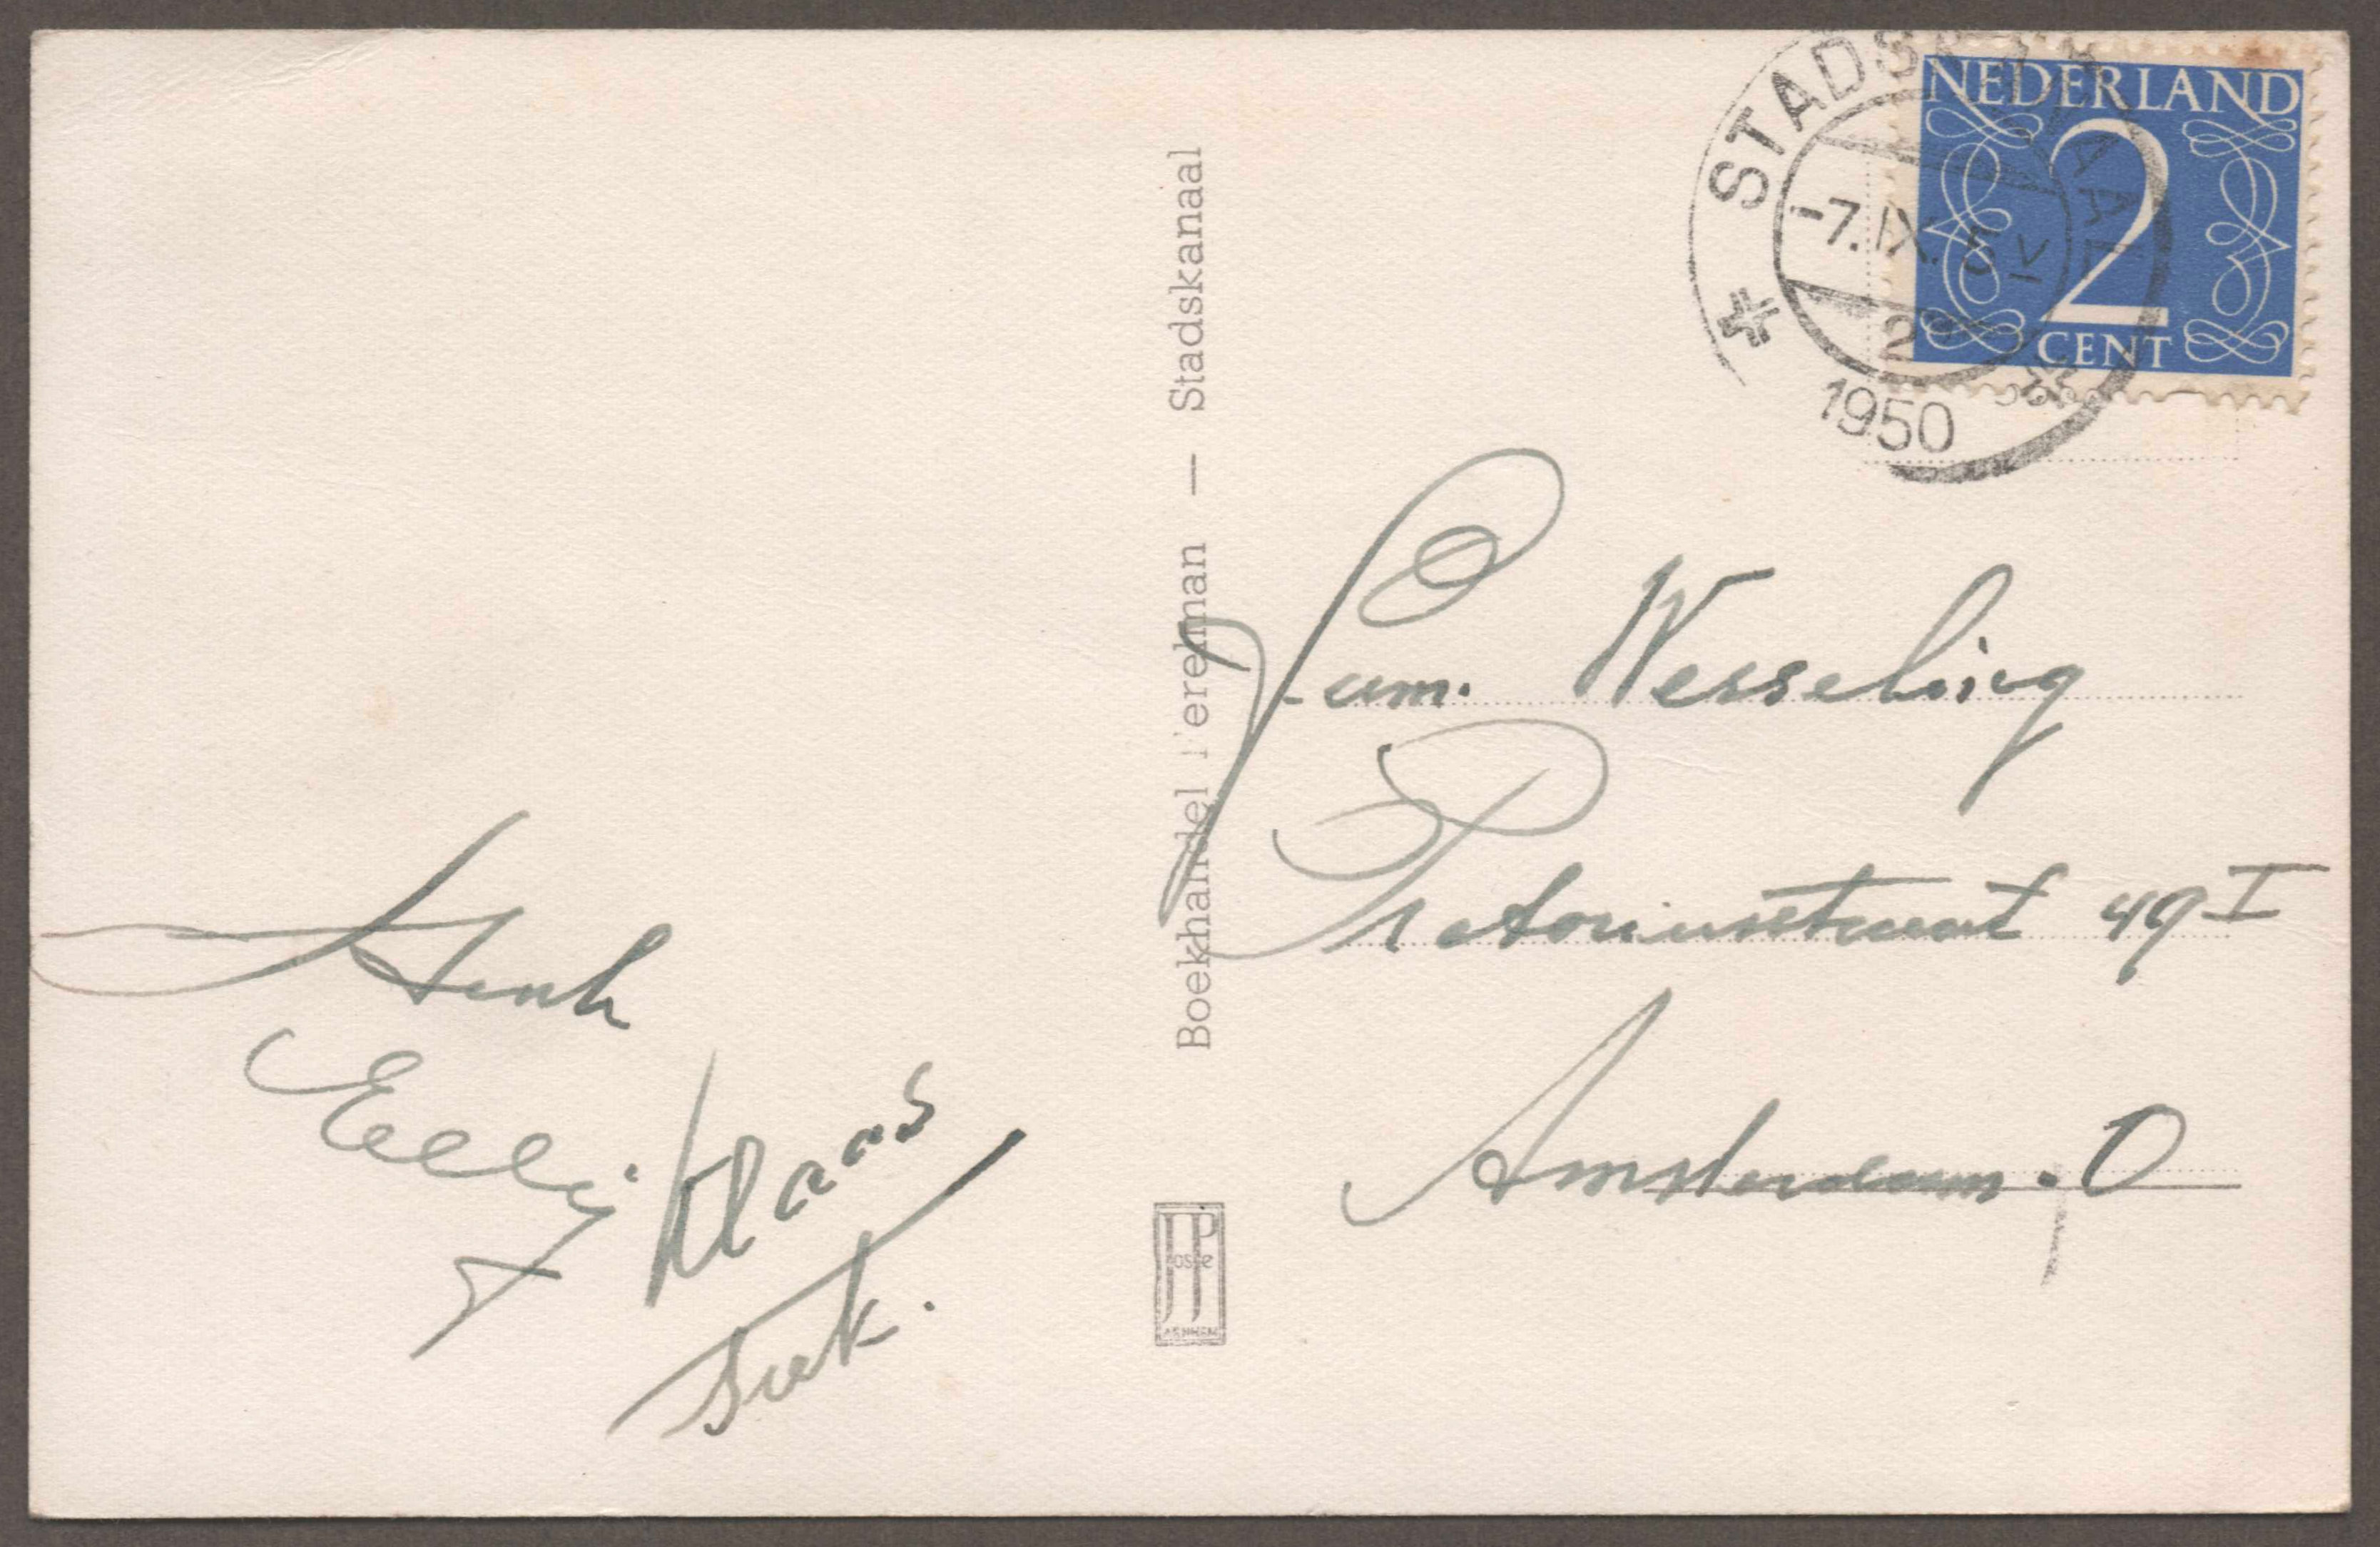 STADSKANAAL
-7.IX. 5
1950
NEDERLAND
2
CENT
Boekhandel Perelman — Stadskanaal
Fam. Wesseling
Pretoriusstraat 49 I
Amsterdam. O
Henk
Elly
Klaas
JP
ARNHEM